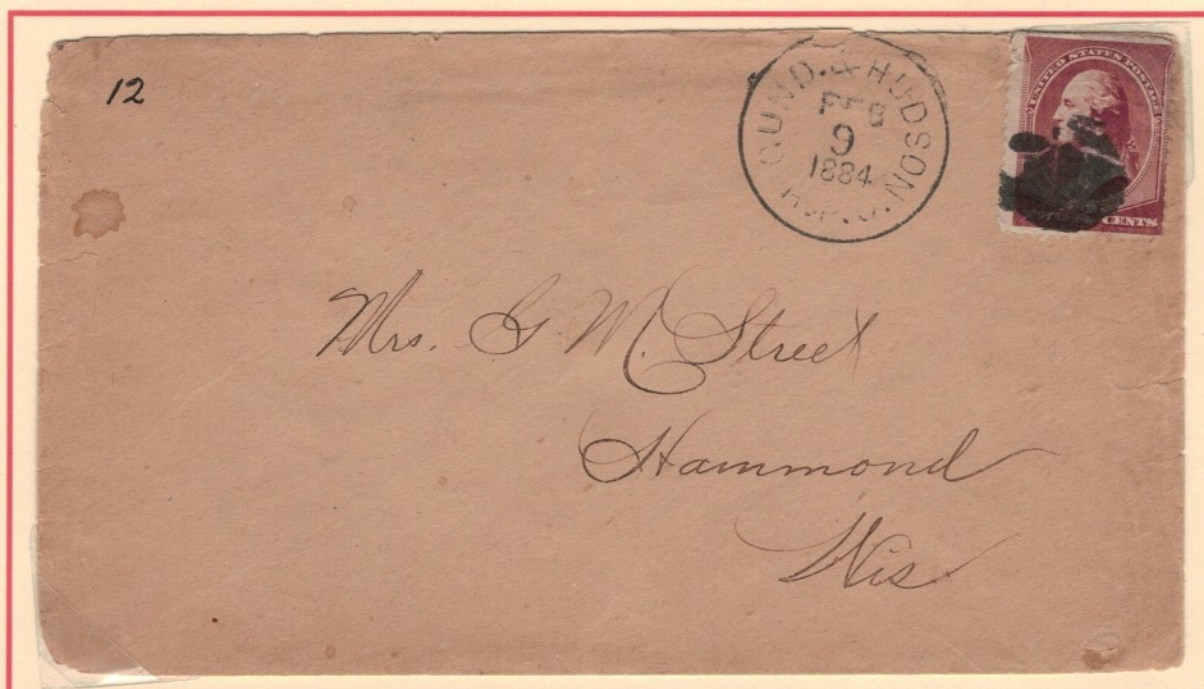 12
& HUDSON
R.P.O.
FEB
9
1884
UNITED STATES POSTAGE
CENTS
Mrs. G. M. Street
Hammond
Wis.